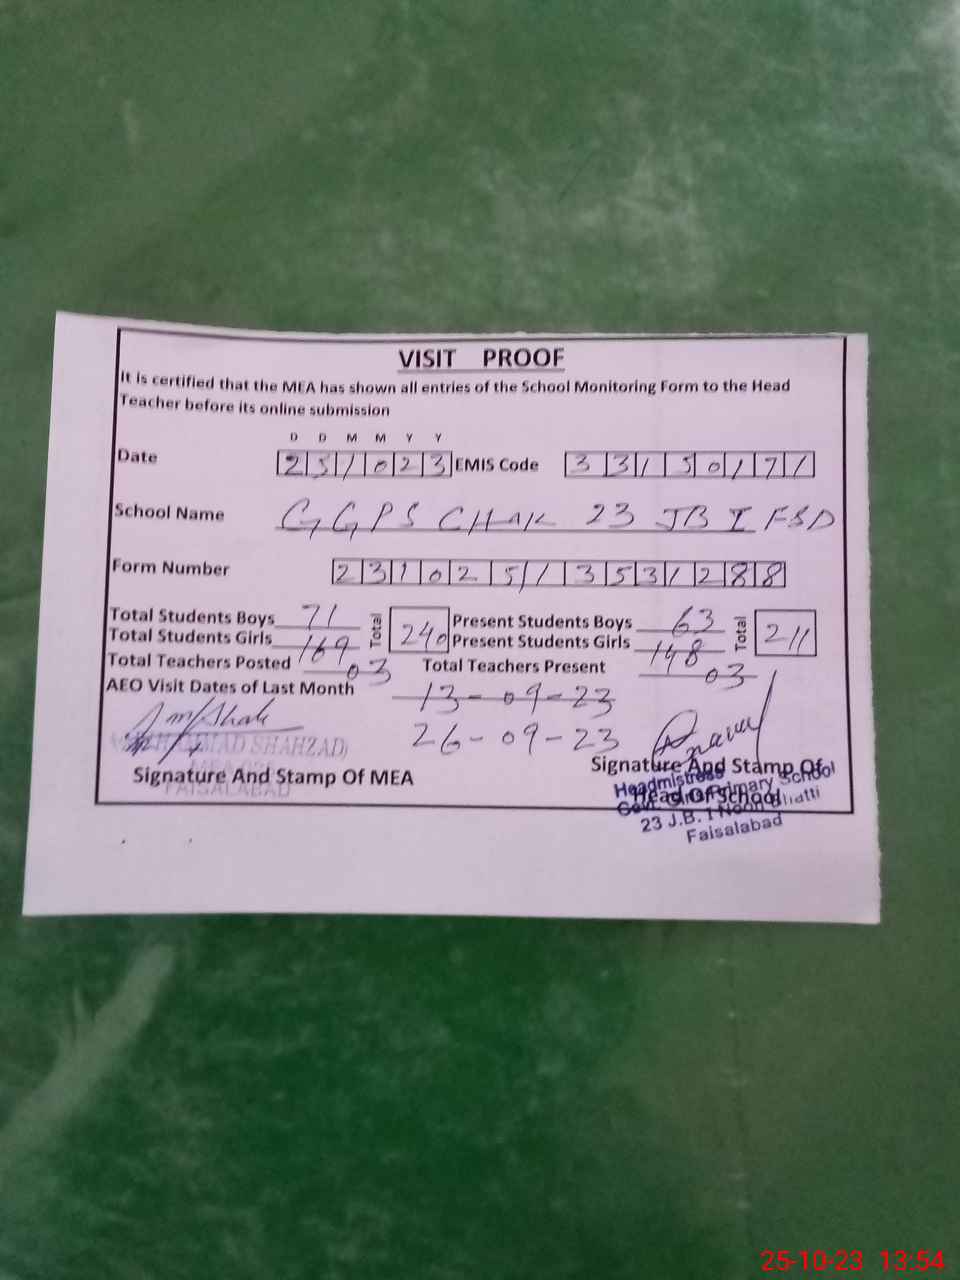 VISIT PROOF
It is certified that the MEA has shown all entries of the School Monitoring Form to the Head
Teacher before its online submission
D D M M Y Y
Date 251023 EMIS Code 33150171
School Name GGPS CHAK 23 JB I FSD
Form Number 23102513531288
Total Students Boys 71 Total 240 Present Students Boys 63 Total 211
Total Students Girls 169 Present Students Girls 148
Total Teachers Posted 03 Total Teachers Present 03
AEO Visit Dates of Last Month 13-09-23
26-09-23
SHAHZAD)
Signature And Stamp Of MEA
FAISALABAD
Signature And Stamp Of
Head Of School
Headmistress
Govt. Girls Primary School
23 J.B. I Noon Bhatti
Faisalabad
25-10-23 13:54